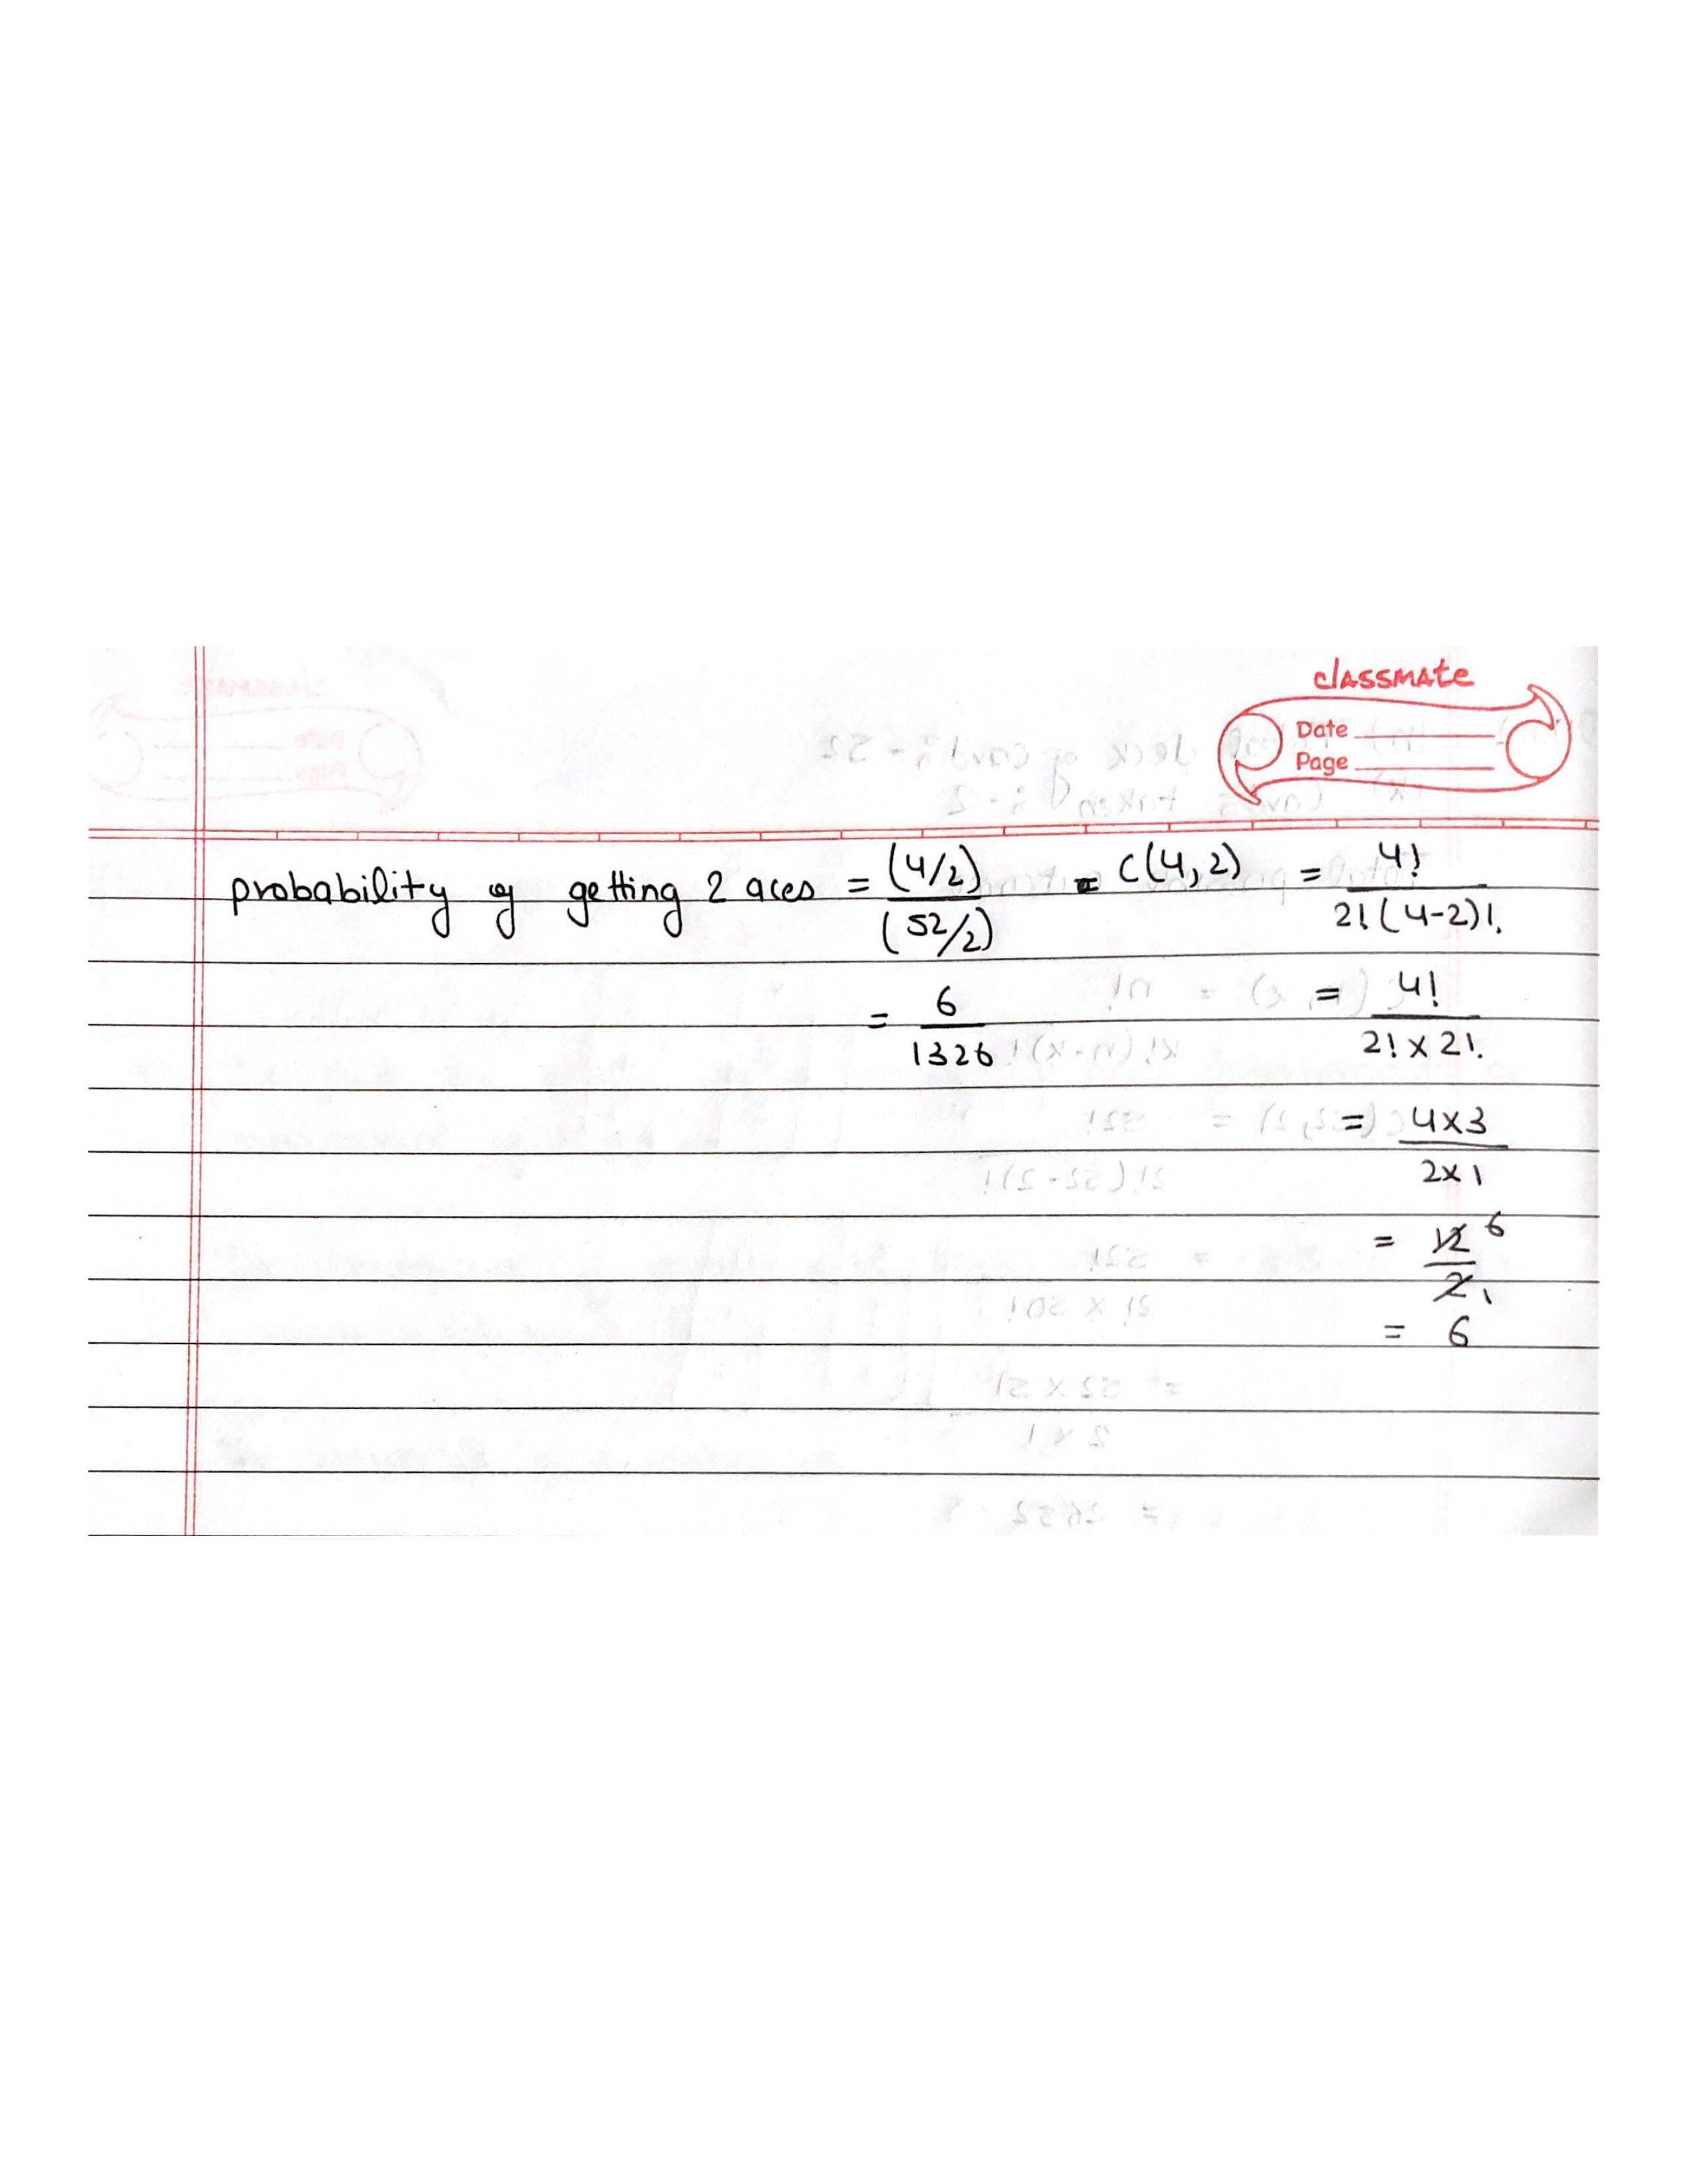 classmate
Date
Page
probability of getting 2 aces = (4/2) / (52/2) = C(4,2) = 4! / 2!(4-2)!
= 6 / 1326 = 4! / 2! x 2!
= 4x3 / 2x1
= 12 6 / 2 1
= 6